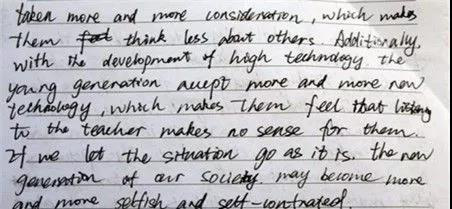 taken more and more consideration, which makes
them think less about others. Additionally,
with the development of high technology, the
young generation accept more and more new
technology, which makes them feel that listening
to the teacher makes no sense for them.
If we let the situation go as it is, the new
generation of our society may become more
and more selfish and self-contrated.